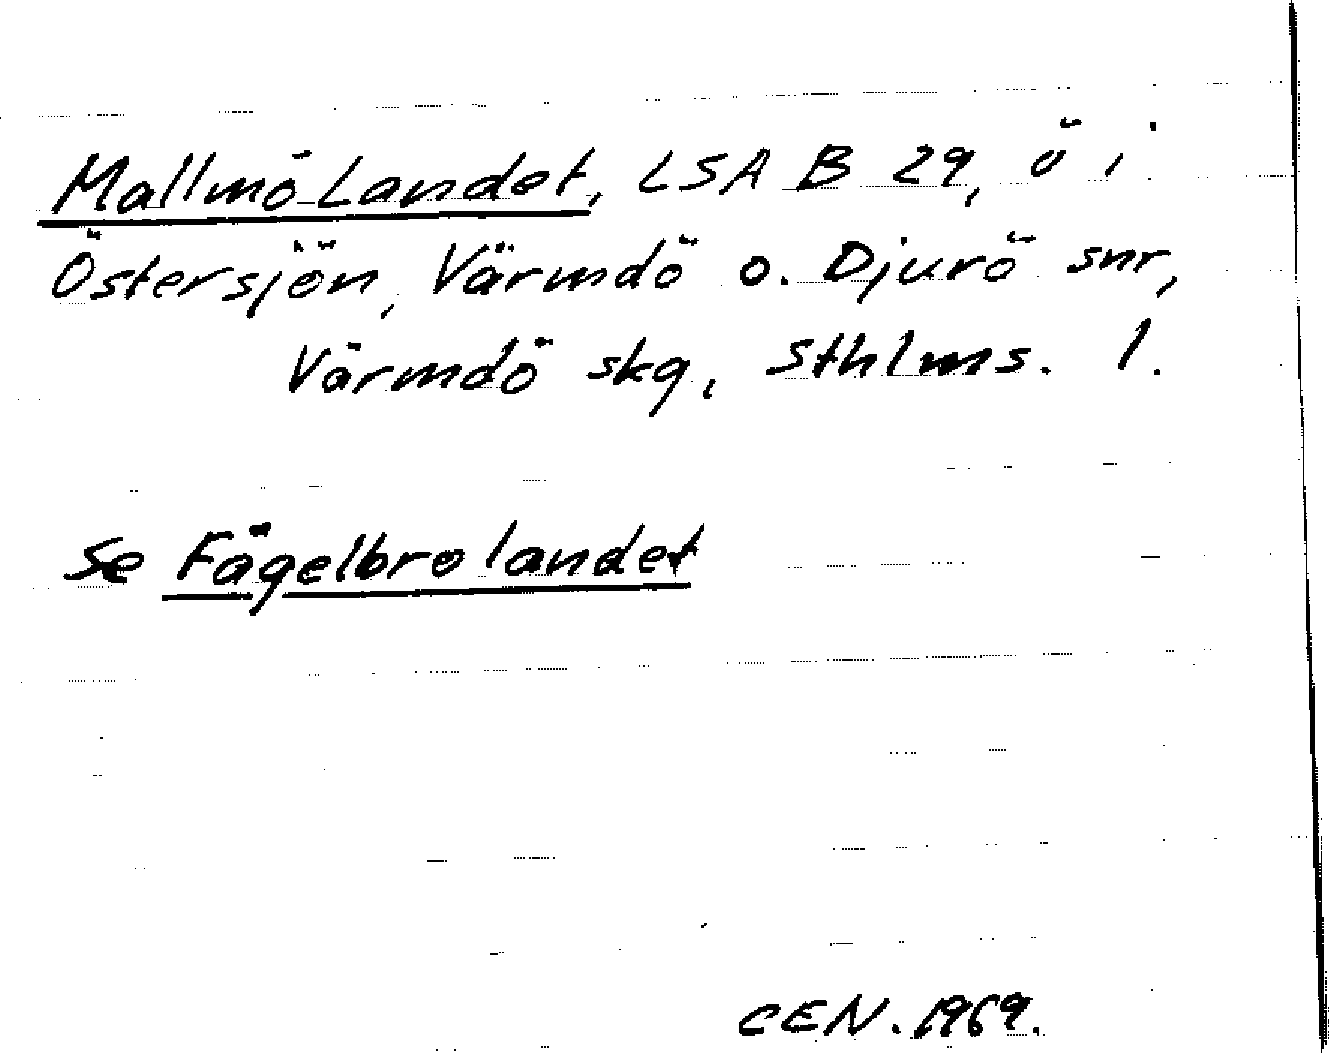 Mallmö Landet, LSA B 29, ö i
Östersjön, Värmdö o. Djurö snr,
Värmdö skg, Sthlms. l.
se Fågelbrolandet
CEN. 1969.